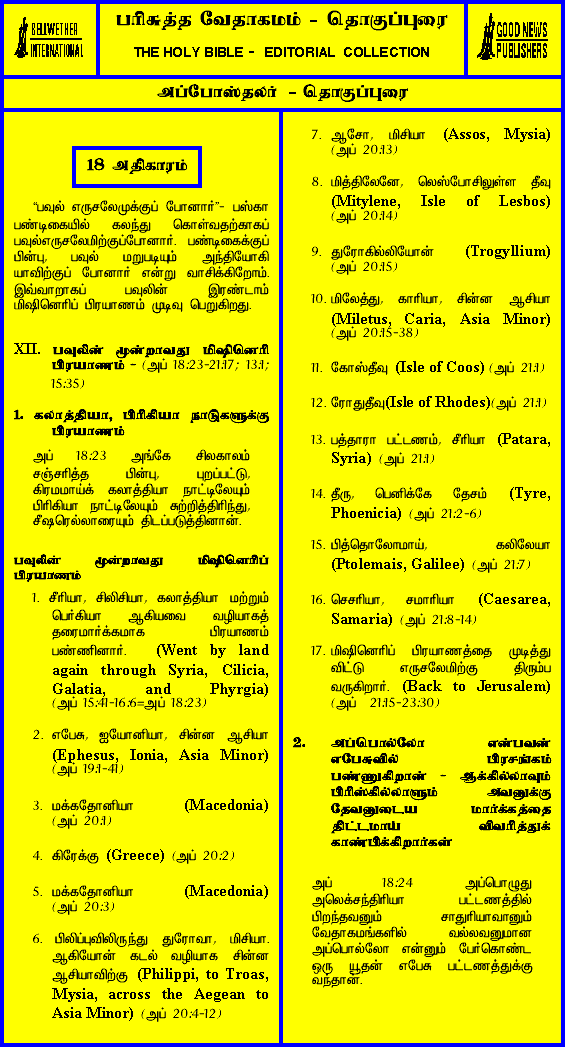 BELLWETHER
INTERNATIONAL
பரிசுத்த வேதாகமம் - தொகுப்புரை
THE HOLY BIBLE - EDITORIAL COLLECTION
GOOD NEWS
PUBLISHERS
அப்போஸ்தலர் - தொகுப்புரை
18 அதிகாரம்
“பவுல் எருசலேமுக்குப் போனார்”- பஸ்கா
பண்டிகையில் கலந்து கொள்வதற்காகப்
பவுல்எருசலேமிற்குப்போனார். பண்டிகைக்குப்
பின்பு, பவுல் மறுபடியும் அந்தியோகி
யாவிற்குப் போனார் என்று வாசிக்கிறோம்.
இவ்வாறாகப் பவுலின் இரண்டாம்
மிஷினெரிப் பிரயாணம் முடிவு பெறுகிறது.
XII. பவுலின் மூன்றாவது மிஷினெரி
பிரயாணம் - (அப் 18:23-21:17; 13:1;
15:35)
1. கலாத்தியா, பிரிகியா நாடுகளுக்கு
பிரயாணம்
அப் 18:23 அங்கே சிலகாலம்
சஞ்சரித்த பின்பு, புறப்பட்டு,
கிரமமாய்க் கலாத்தியா நாட்டிலேயும்
பிரிகியா நாட்டிலேயும் சுற்றித்திரிந்து,
சீஷரெல்லாரையும் திடப்படுத்தினான்.
பவுலின் மூன்றாவது மிஷினெரிப்
பிரயாணம்
1. சீரியா, சிலிசியா, கலாத்தியா மற்றும்
பெர்கியா ஆகியவை வழியாகத்
தரைமார்க்கமாக பிரயாணம்
பண்ணினார். (Went by land
again through Syria, Cilicia,
Galatia, and Phyrgia)
(அப் 15:41-16:6=அப் 18:23)
2. எபேசு, ஐயோனியா, சின்ன ஆசியா
(Ephesus, Ionia, Asia Minor)
(அப் 19:1-41)
3. மக்கதோனியா (Macedonia)
(அப் 20:1)
4. கிரேக்கு (Greece) (அப் 20:2)
5. மக்கதோனியா (Macedonia)
(அப் 20:3)
6. பிலிப்புவிலிருந்து துரோவா, மிசியா.
ஆகியோன் கடல் வழியாக சின்ன
ஆசியாவிற்கு (Philippi, to Troas,
Mysia, across the Aegean to
Asia Minor) (அப் 20:4-12)
7. ஆசோ, மிசியா (Assos, Mysia)
(அப் 20:13)
8. மித்திலேனே, லெஸ்போசிலுள்ள தீவு
(Mitylene, Isle of Lesbos)
(அப் 20:14)
9. துரோகில்லியோன் (Trogyllium)
(அப் 20:15)
10. மிலேத்து, காரியா, சின்ன ஆசியா
(Miletus, Caria, Asia Minor)
(அப் 20:15-38)
11. கோஸ்தீவு (Isle of Coos) (அப் 21:1)
12. ரோதுதீவு(Isle of Rhodes)(அப் 21:1)
13. பத்தாரா பட்டணம், சீரியா (Patara,
Syria) (அப் 21:1)
14. தீரு, பெனிக்கே தேசம் (Tyre,
Phoenicia) (அப் 21:2-6)
15. பித்தொலோமாய், கலிலேயா
(Ptolemais, Galilee) (அப் 21:7)
16. செசரியா, சமாரியா (Caesarea,
Samaria) (அப் 21:8-14)
17. மிஷினெரிப் பிரயாணத்தை முடித்து
விட்டு எருசலேமிற்கு திரும்ப
வருகிறார். (Back to Jerusalem)
(அப் 21:15-23:30)
2. அப்பொல்லோ என்பவன்
எபேசுவில் பிரசங்கம்
பண்ணுகிறான் - ஆக்கில்லாவும்
பிரிஸ்கில்லாளும் அவனுக்கு
தேவனுடைய மார்க்கத்தை
திட்டமாய் விவரித்துக்
காண்பிக்கிறார்கள்
அப் 18:24 அப்பொழுது
அலெக்சந்திரியா பட்டணத்தில்
பிறந்தவனும் சாதுரியவானும்
வேதாகமங்களில் வல்லவனுமான
அப்பொல்லோ என்னும் பேர்கொண்ட
ஒரு யூதன் எபேசு பட்டணத்துக்கு
வந்தான்.